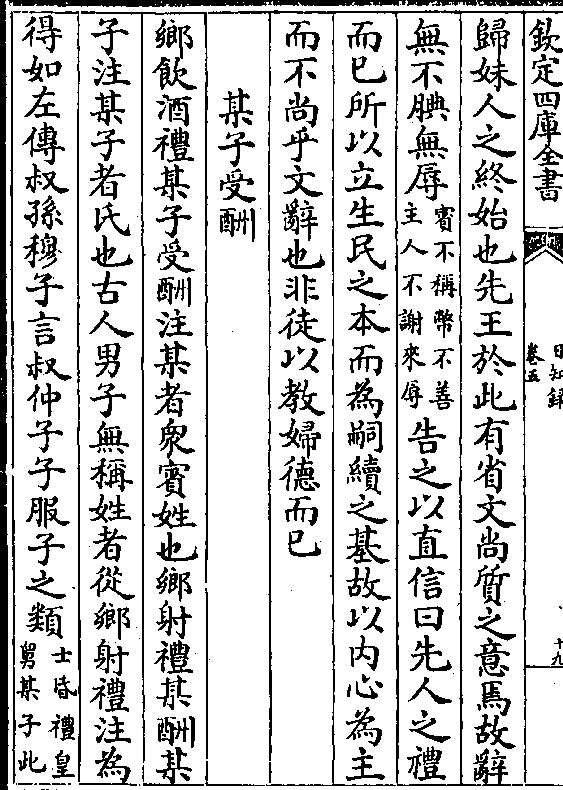 欽定四庫全書
日知錄
卷五
十九
歸妹人之終始也先王於此有省文尚質之意焉故辭
無不腆無辱賓不稱幣不善主人不謝來辱告之以直信曰先人之禮
而已所以立生民之本而為嗣續之基故以内心為主
而不尚乎文辭也非徒以教婦德而已
某子受酬
鄉飲酒禮某子受酬注某者衆賓姓也鄉射禮某酬某
子注某子者氏也古人男子無稱姓者從鄉射禮注為
得如左傳叔孫穆子言叔仲子子服子之類士昏禮皇舅某子此